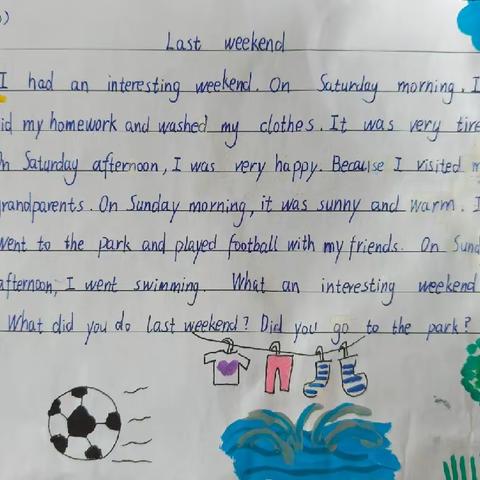 )
Last weekend
I had an interesting weekend. On Saturday morning, I
id my homework and washed my clothes. It was very tire
n Saturday afternoon, I was very happy. Because I visited m
randparents. On Sunday morning, it was sunny and warm. I
went to the park and played football with my friends. On Sund
afternoon, I went swimming. What an interesting weekend
What did you do last weekend? Did you go to the park?